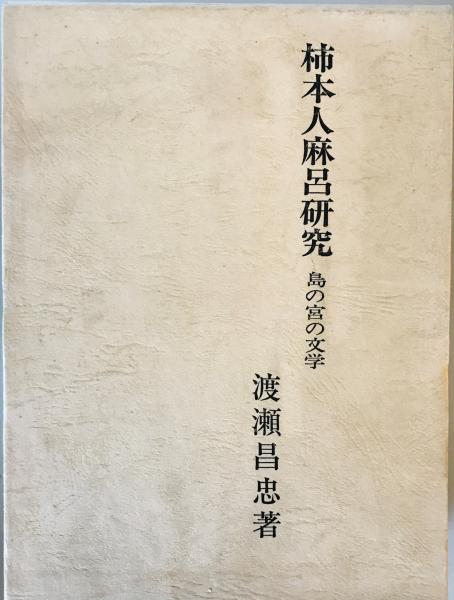 柿本人麻呂研究
島の宮の文学
渡瀬昌忠著